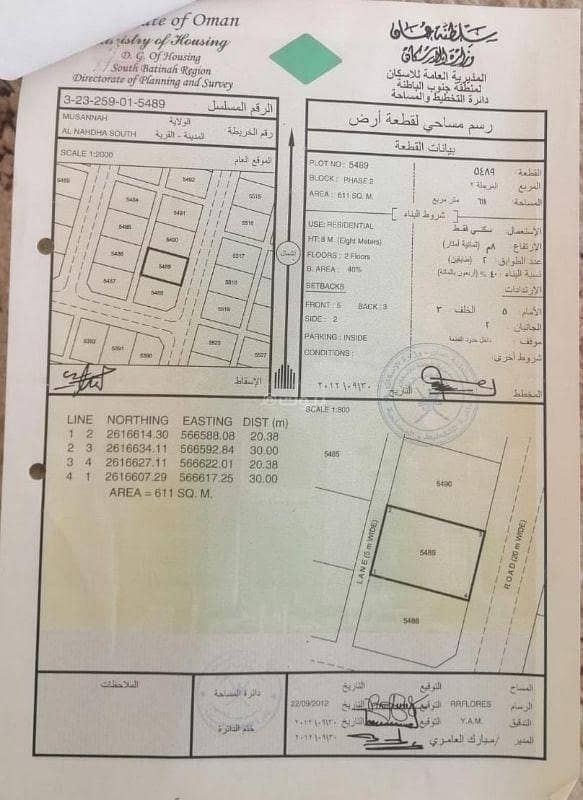 ate of Oman
Ministry of Housing
D. G. Of Housing
South Batinah Region
Directorate of Planning and Survey
سلطنة عمان
وزارة الإسكان
المديرية العامة للاسكان
لمنطقة جنوب الباطنة
دائرة التخطيط والمساحة
3-23-259-01-5489 الرقم المسلسل
MUSANNAH الولاية
AL NAHDHA SOUTH المدينة - القرية رقم الخريطة
SCALE 1:2000 الموقع العام
5485
5484
5491
5490
5486
5489
5487
5488
5515
5516
5517
5518
5519
5525
5527
5592
5591
5590
الشمال
الإسقاط
رسم مساحي لقطعة أرض
بيانات القطعة
PLOT NO : 5489 القطعة ٥٤٨٩
BLOCK : PHASE 2 المربع المرحلة ٢
AREA : 611 SQ. M. المساحة ٦١١ متر مربع
شروط البناء
USE: RESIDENTIAL الاستعمال: سكني فقط
HT: 8 M. (Eight Meters) الارتفاع: ٨م (ثمانية أمتار)
FLOORS : 2 Floors عدد الطوابق ٢ (طابقين)
B. AREA : 40% نسبة البناء ٤٠ % (أربعون بالمائة)
SETBACKS الإرتدادات
FRONT : 5 BACK : 3 الأمام: ٥ الخلف ٣
SIDE : 2 الجانبان: ٢
PARKING : INSIDE موقف: داخل حدود القطعة
CONDITIONS : شروط أخرى:
المخطط التاريخ ٢٠١٢/٠٩/٣٠
SCALE 1:800
LINE NORTHING EASTING DIST (m)
1 2 2616614.30 566588.08 20.38
2 3 2616634.11 566592.84 30.00
3 4 2616627.11 566622.01 20.38
4 1 2616607.29 566617.25 30.00
AREA = 611 SQ. M.
5485
5490
5489
5488
LANE (5 m WIDE)
ROAD (20 m WIDE)
الملاحظات
دائرة المساحة
ختم الدائرة
المساح التوقيع التاريخ
الرسام RRFLORES التوقيع التاريخ 22/09/2012
التدقيق Y.A.M. التوقيع التاريخ ٢٠١٢/٠٩/٣٠
المدير /مبارك العامري التوقيع التاريخ ٢٠١٢/٠٩/٣٠